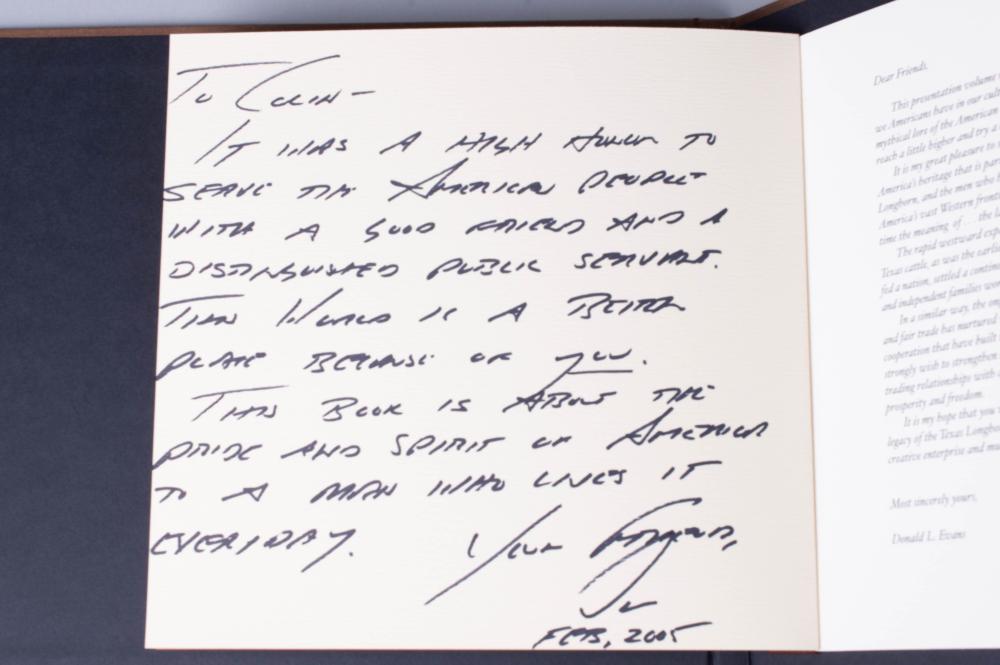 To Colin -
It was a high honor to
serve the American people
with a good friend and a
distinguished public servant.
This World is a better
place because of you.
This Book is about the
pride and spirit of America
to a man who lives it
everyday. Your friend,
Feb, 2005
Dear Friends,
This presentation volume
we Americans have in our cult
mythical lore of the American
reach a little higher and try a
It is my great pleasure to
America's heritage that is part
Longhorn, and the men who
America's vast Western fronti
time the meaning of . . . the
The rapid westward exp
Texas cattle, as was the earli
fed a nation, settled a contin
and independent families wer
In a similar way, the
and fair trade has nurtured
cooperation that have built
strongly wish to strengthen
trading relationships with
prosperity and freedom.
It is my hope that you
legacy of the Texas Longho
creative enterprise and mu
Most sincerely yours,
Donald L. Evans